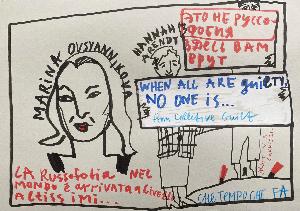 MARINA OVSYANNIKOVA
HANNAH
ARENDT
ЭТО НЕ РУССО-
ФОБИЯ
ЗДЕСЬ ВАМ
ВРУТ
WHEN ALL ARE guilty
NO ONE IS...
from Collective Guilt
LA Russofobia NEL
MONDO È ARRIVATA A Livelli
ALTISSIMI...
CHE TEMPO CHE FA